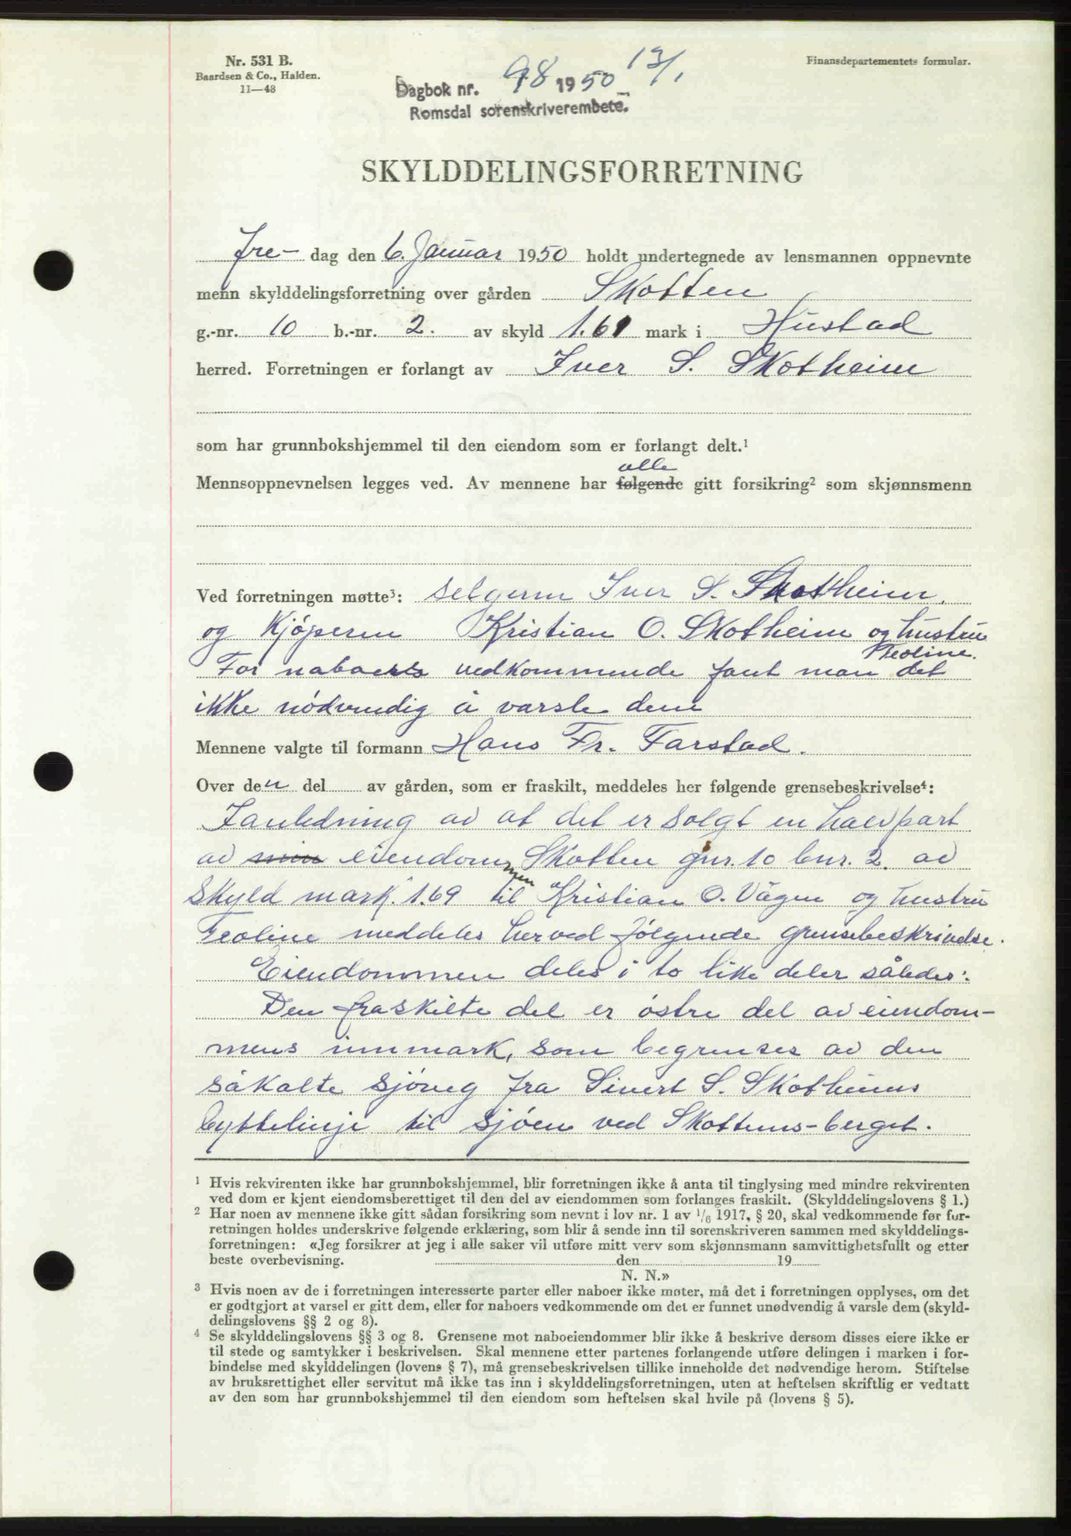 Nr. 531 B.
Baardsen & Co., Halden.
11—48
Finansdepartementets formular.
Dagbok nr. 98 1950 13/1
Romsdal sorenskriverembete.
SKYLDDELINGSFORRETNING
Fre- dag den 6. Januar 1950 holdt undertegnede av lensmannen oppnevnte
menn skylddelingsforretning over gården Skotten
g.-nr. 10 b.-nr. 2. av skyld 1.61 mark i Hustad
herred. Forretningen er forlangt av Iver S. Skotheim
som har grunnbokshjemmel til den eiendom som er forlangt delt.¹
alle
Mennsoppnevnelsen legges ved. Av mennene har følgende gitt forsikring² som skjønnsmenn
Ved forretningen møtte³: selgeren Iver S. Skotheim,
og kjøperen Kristian O. Skotheim og hustru
Teoline.
For naboers vedkommende fant man det
ikke nödvendig å varsle dem
Mennene valgte til formann Hans Fr. Farstad.
Over den del av gården, som er fraskilt, meddeles her følgende grensebeskrivelse⁴:
I anledning av at det er solgt en halvpart
av min eiendommen Skotten gnr. 10 bnr. 2. av
Skyld mark. 1.69 til Kristian O. Vågen og hustru
Teoline meddeles herved følgende grensebeskrivelse.
Eiendommen deles i to like deler således:
Den fraskilte del er östre del av eiendom-
mens innmark, som begrenses av den
såkalte sjöveg fra Sivert S. Skotheims
byttelinje til sjöen ved Skottens-berget.
¹ Hvis rekvirenten ikke har grunnbokshjemmel, blir forretningen ikke å anta til tinglysing med mindre rekvirenten
ved dom er kjent eiendomsberettiget til den del av eiendommen som forlanges fraskilt. (Skylddelingslovens § 1.)
² Har noen av mennene ikke gitt sådan forsikring som nevnt i lov nr. 1 av 1/6 1917, § 20, skal vedkommende før for-
retningen holdes underskrive følgende erklæring, som blir å sende inn til sorenskriveren sammen med skylddelings-
forretningen: «Jeg forsikrer at jeg i alle saker vil utføre mitt verv som skjønnsmann samvittighetsfullt og etter
beste overbevisning. den 19
N. N.»
³ Hvis noen av de i forretningen interesserte parter eller naboer ikke møter, må det i forretningen opplyses, om det
er godtgjort at varsel er gitt dem, eller for naboers vedkommende om det er funnet unødvendig å varsle dem (skyld-
delingslovens §§ 2 og 8).
⁴ Se skylddelingslovens §§ 3 og 8. Grensene mot naboeiendommer blir ikke å beskrive dersom disses eiere ikke er
til stede og samtykker i beskrivelsen. Skal mennene etter partenes forlangende utføre delingen i marken i for-
bindelse med skylddelingen (lovens § 7), må grensebeskrivelsen tillike inneholde det nødvendige herom. Stiftelse
av bruksrettighet eller servitut må ikke tas inn i skylddelingsforretningen, uten at heftelsen skriftlig er vedtatt
av den som har grunnbokshjemmel til den eiendom som heftelsen skal hvile på (lovens § 5).